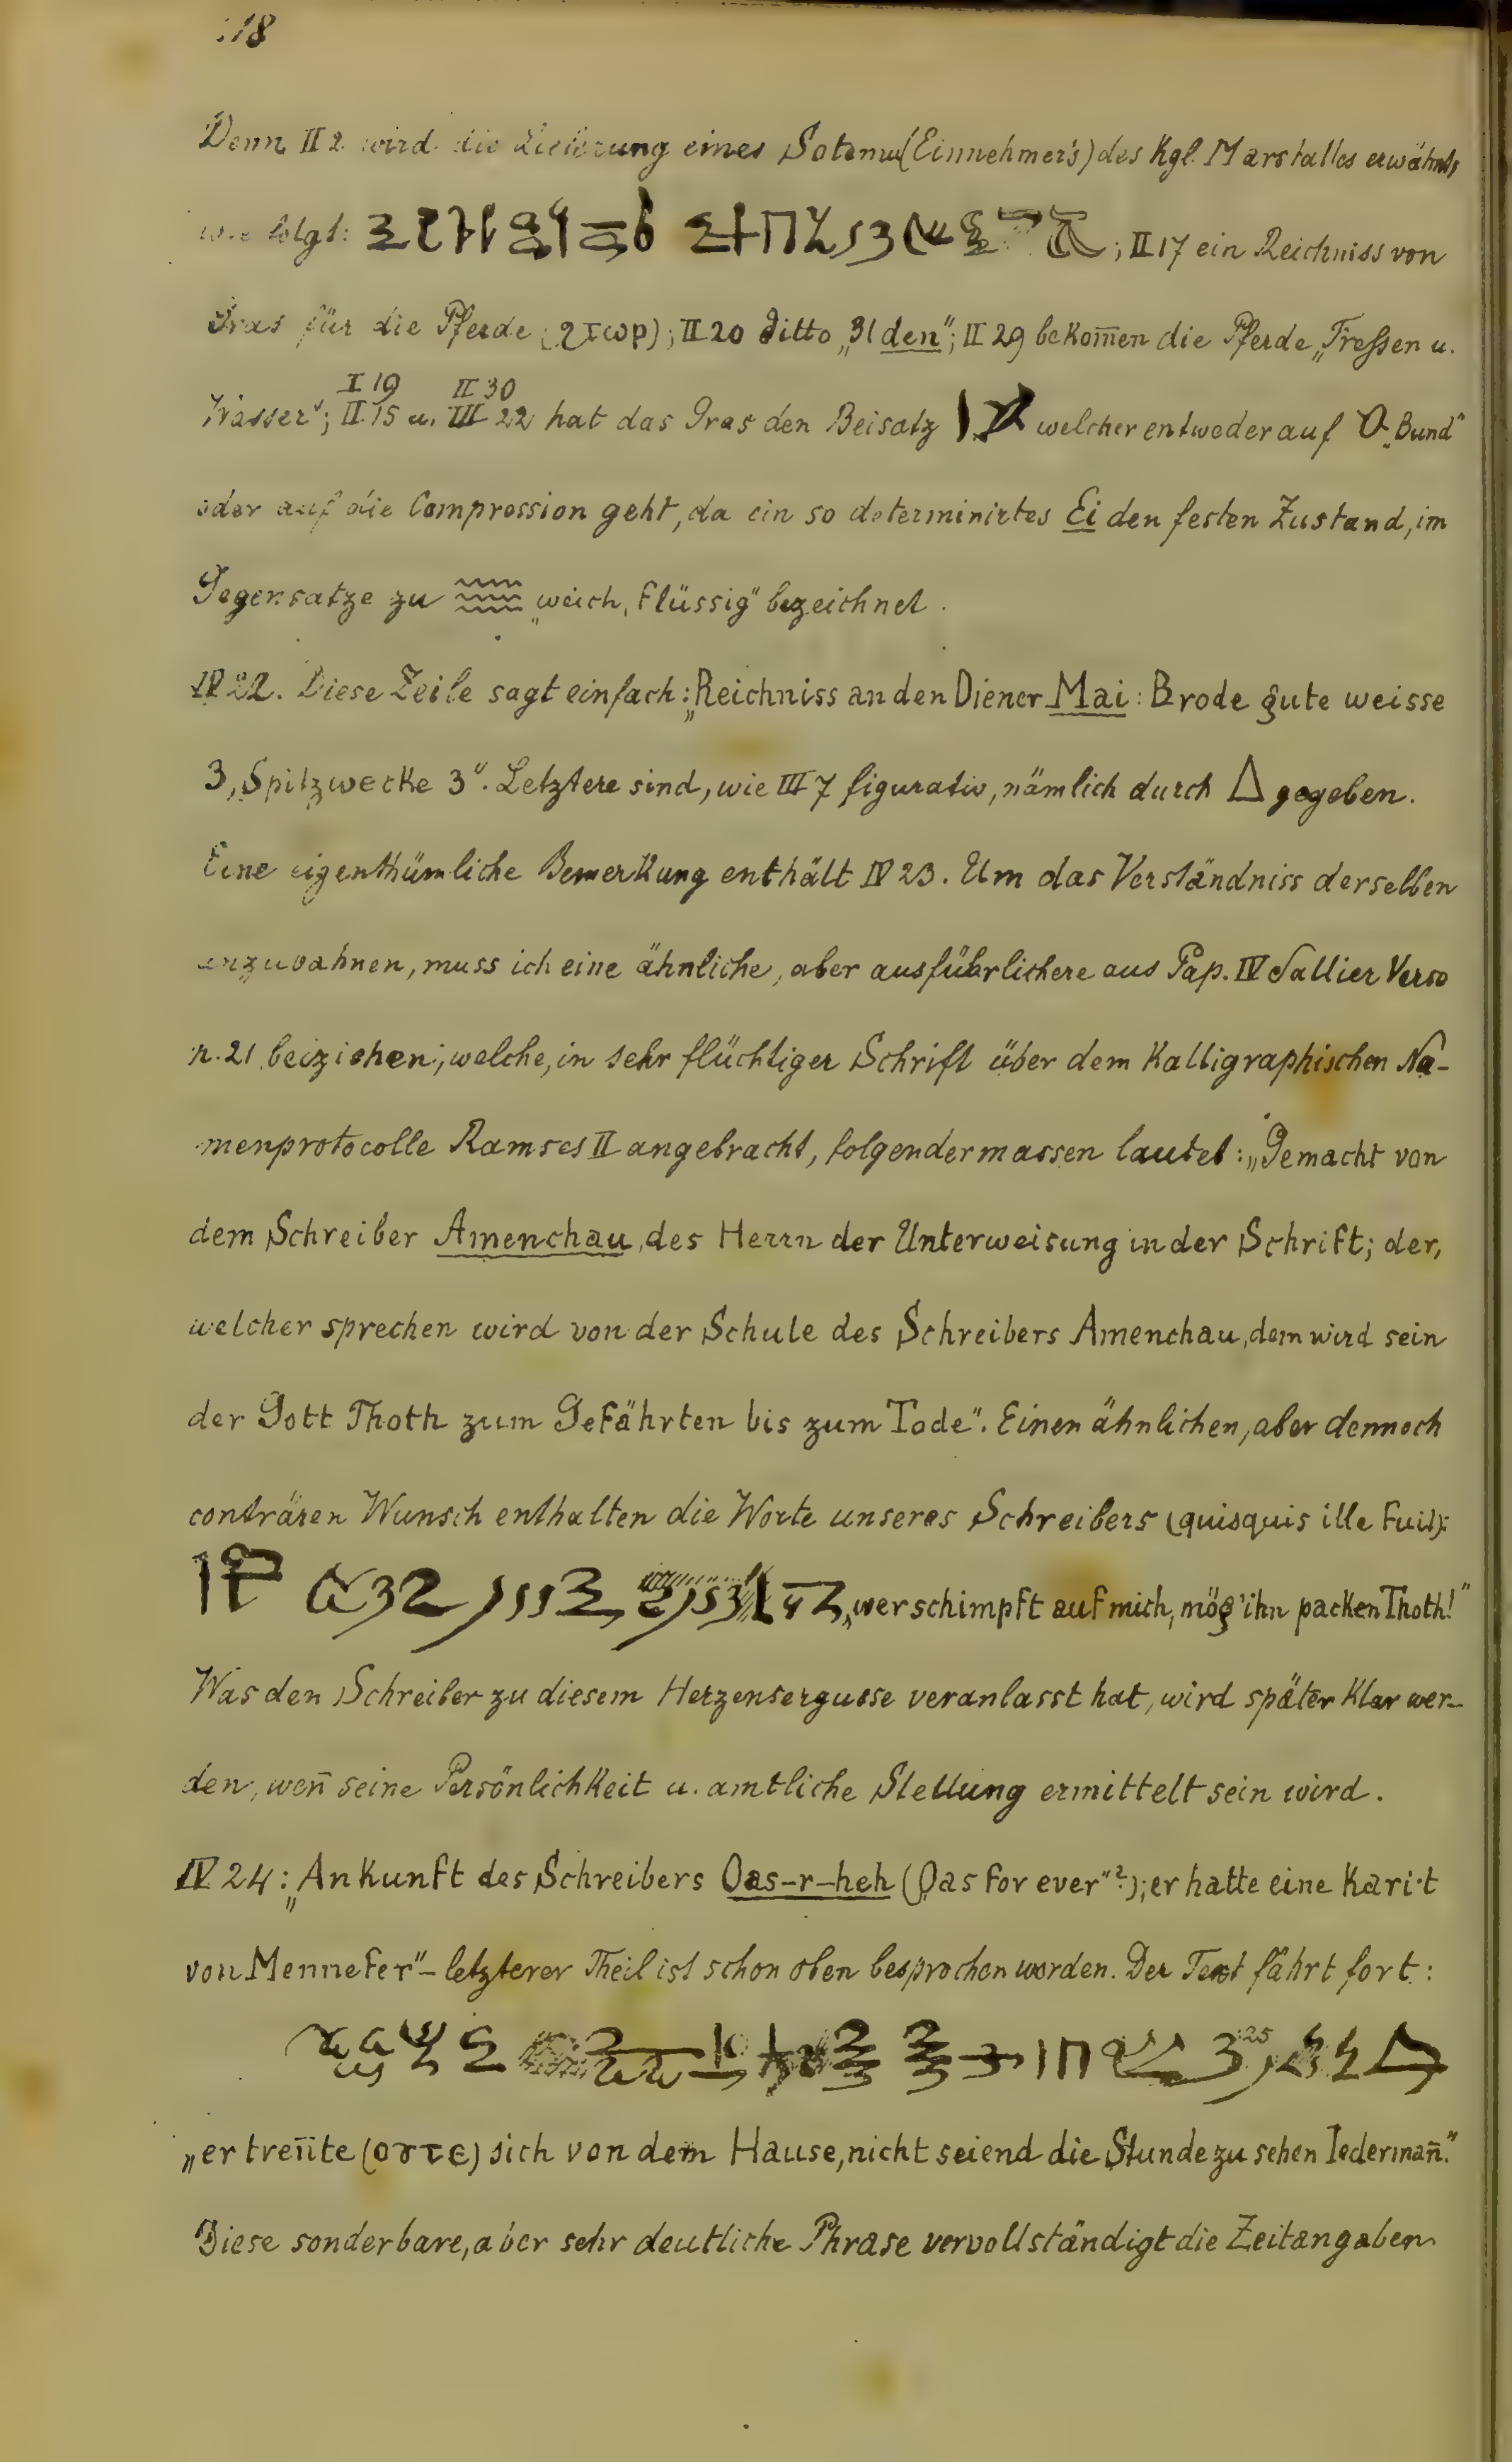 18
Denn II 2 wird die Lieferung eines Sotemu (Einnehmer's) des Kgl. Marstalles erwähnt,
wie folgt: ; II 17 ein Reichniss von
Gras für die Pferde (ϩⲧⲱⲣ); II 20 ditto „31 den“; II 29 bekom̄en die Pferde „Fressen u.
I 19 II 30
Wasser“; II 15 u. III 22 hat das Gras den Beisatz welcher entweder auf „Bund“
oder auf die Compression geht, da ein so determinirtes Ei den festen Zustand, im
Gegensatze zu 𓈗 „weich, flüssig“ bezeichnet.
IV 22. Diese Zeile sagt einfach: „Reichniss an den Diener Mai: Brode gute weisse
3, Spitzwecke 3“. Letztere sind, wie III 7 figurativ, nämlich durch △ gegeben.
Eine eigenthümliche Bemerkung enthält IV 23. Um das Verständniss derselben
anzubahnen, muss ich eine ähnliche, aber ausführlichere aus Pap. IV Sallier Verso
n. 21 beiziehen, welche, in sehr flüchtiger Schrift über dem kalligraphischen Na-
menprotocolle Ramses II angebracht, folgendermassen lautet: „Gemacht von
dem Schreiber Amenchau, des Herrn der Unterweisung in der Schrift; der,
welcher sprechen wird von der Schule des Schreibers Amenchau, dem wird sein
der Gott Thoth zum Gefährten bis zum Tode“. Einen ähnlichen, aber dennoch
conträren Wunsch enthalten die Worte unseres Schreibers (quisquis ille fuit):
„wer schimpft auf mich, mög' ihn packen Thoth!“
Was den Schreiber zu diesem Herzensergusse veranlasst hat, wird später klar wer-
den, wen̄ seine Persönlichkeit u. amtliche Stellung ermittelt sein wird.
IV 24: „Ankunft des Schreibers Oas-r-heh („Oas for ever“?); er hatte eine Kari·t
von Mennefer“ – letzterer Theil ist schon oben besprochen worden. Der Text fährt fort:
25
„er tren̄te (ⲟⲩⲧⲉ) sich von dem Hause, nicht seiend die Stunde zu sehen Iederman̄.“
Diese sonderbare, aber sehr deutliche Phrase vervollständigt die Zeitangaben